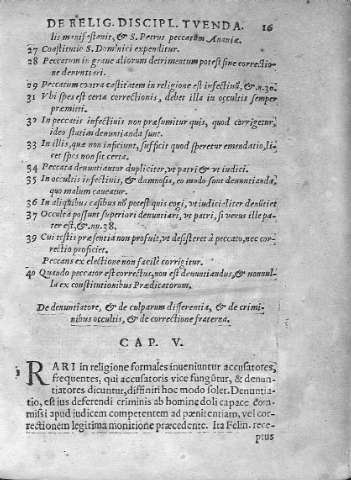 DE RELIG. DISCIPL. TVENDA. 16
lis manifestauit, & S. Petrus peccatum Ananiæ.
27 Constitutio S. Dominici expenditur.
28 Peccatum in graue aliorum detrimentum potest sine correctione denuntiari.
29 Peccatum contra castitatem in religione est infectiuũ, & n.30.
31 Vbi spes est certa correctionis, debet illa in occultis semper
præmitti.
32 In peccatis infectiuis non præsumitur quis, quod corrigetur,
ideo statim denuntianda sunt.
33 In illis, quæ non inficiunt, sufficit quod speretur emendatio, licet
spes non sit certa.
34 Peccata denuntiantur dupliciter, vt patri & vt iudici.
35 In occultis infectiuis, & damnosis, eo modo sunt denuntianda,
quo malum caueatur.
36 In aliquibus casibus nõ potest quis cogi, vt iudici denũciet
37 Occulta possunt superiori denuntiari, vt patri, si verus ille pater
est, & nu.38.
39 Cui testis præsentia non profuit, vt desisteret à peccato, nec correctio
proficiet.
Peccans ex electione non facile corrigitur.
40 Quando peccator est correctus, non est denuntiandus, & nonnulla
ex constitutionibus Prædicatorum.
De denuntiatore, & de culparum differentia, & de criminibus
occultis, & de correctione fraterna.
CAP. V.
1 RARI in religione formales inueniuntur accusatores,
frequentes, qui accusatoris vice fungũtur, & denuntiatores
dicuntur, diffiniri hoc modo solet. Denuntiatio,
est ius deferendi criminis ab homine doli capace commissi
apud iudicem competentem ad pænitentiam, vel correctionem
legitima monitione præcedente. Ita Felin. receptus